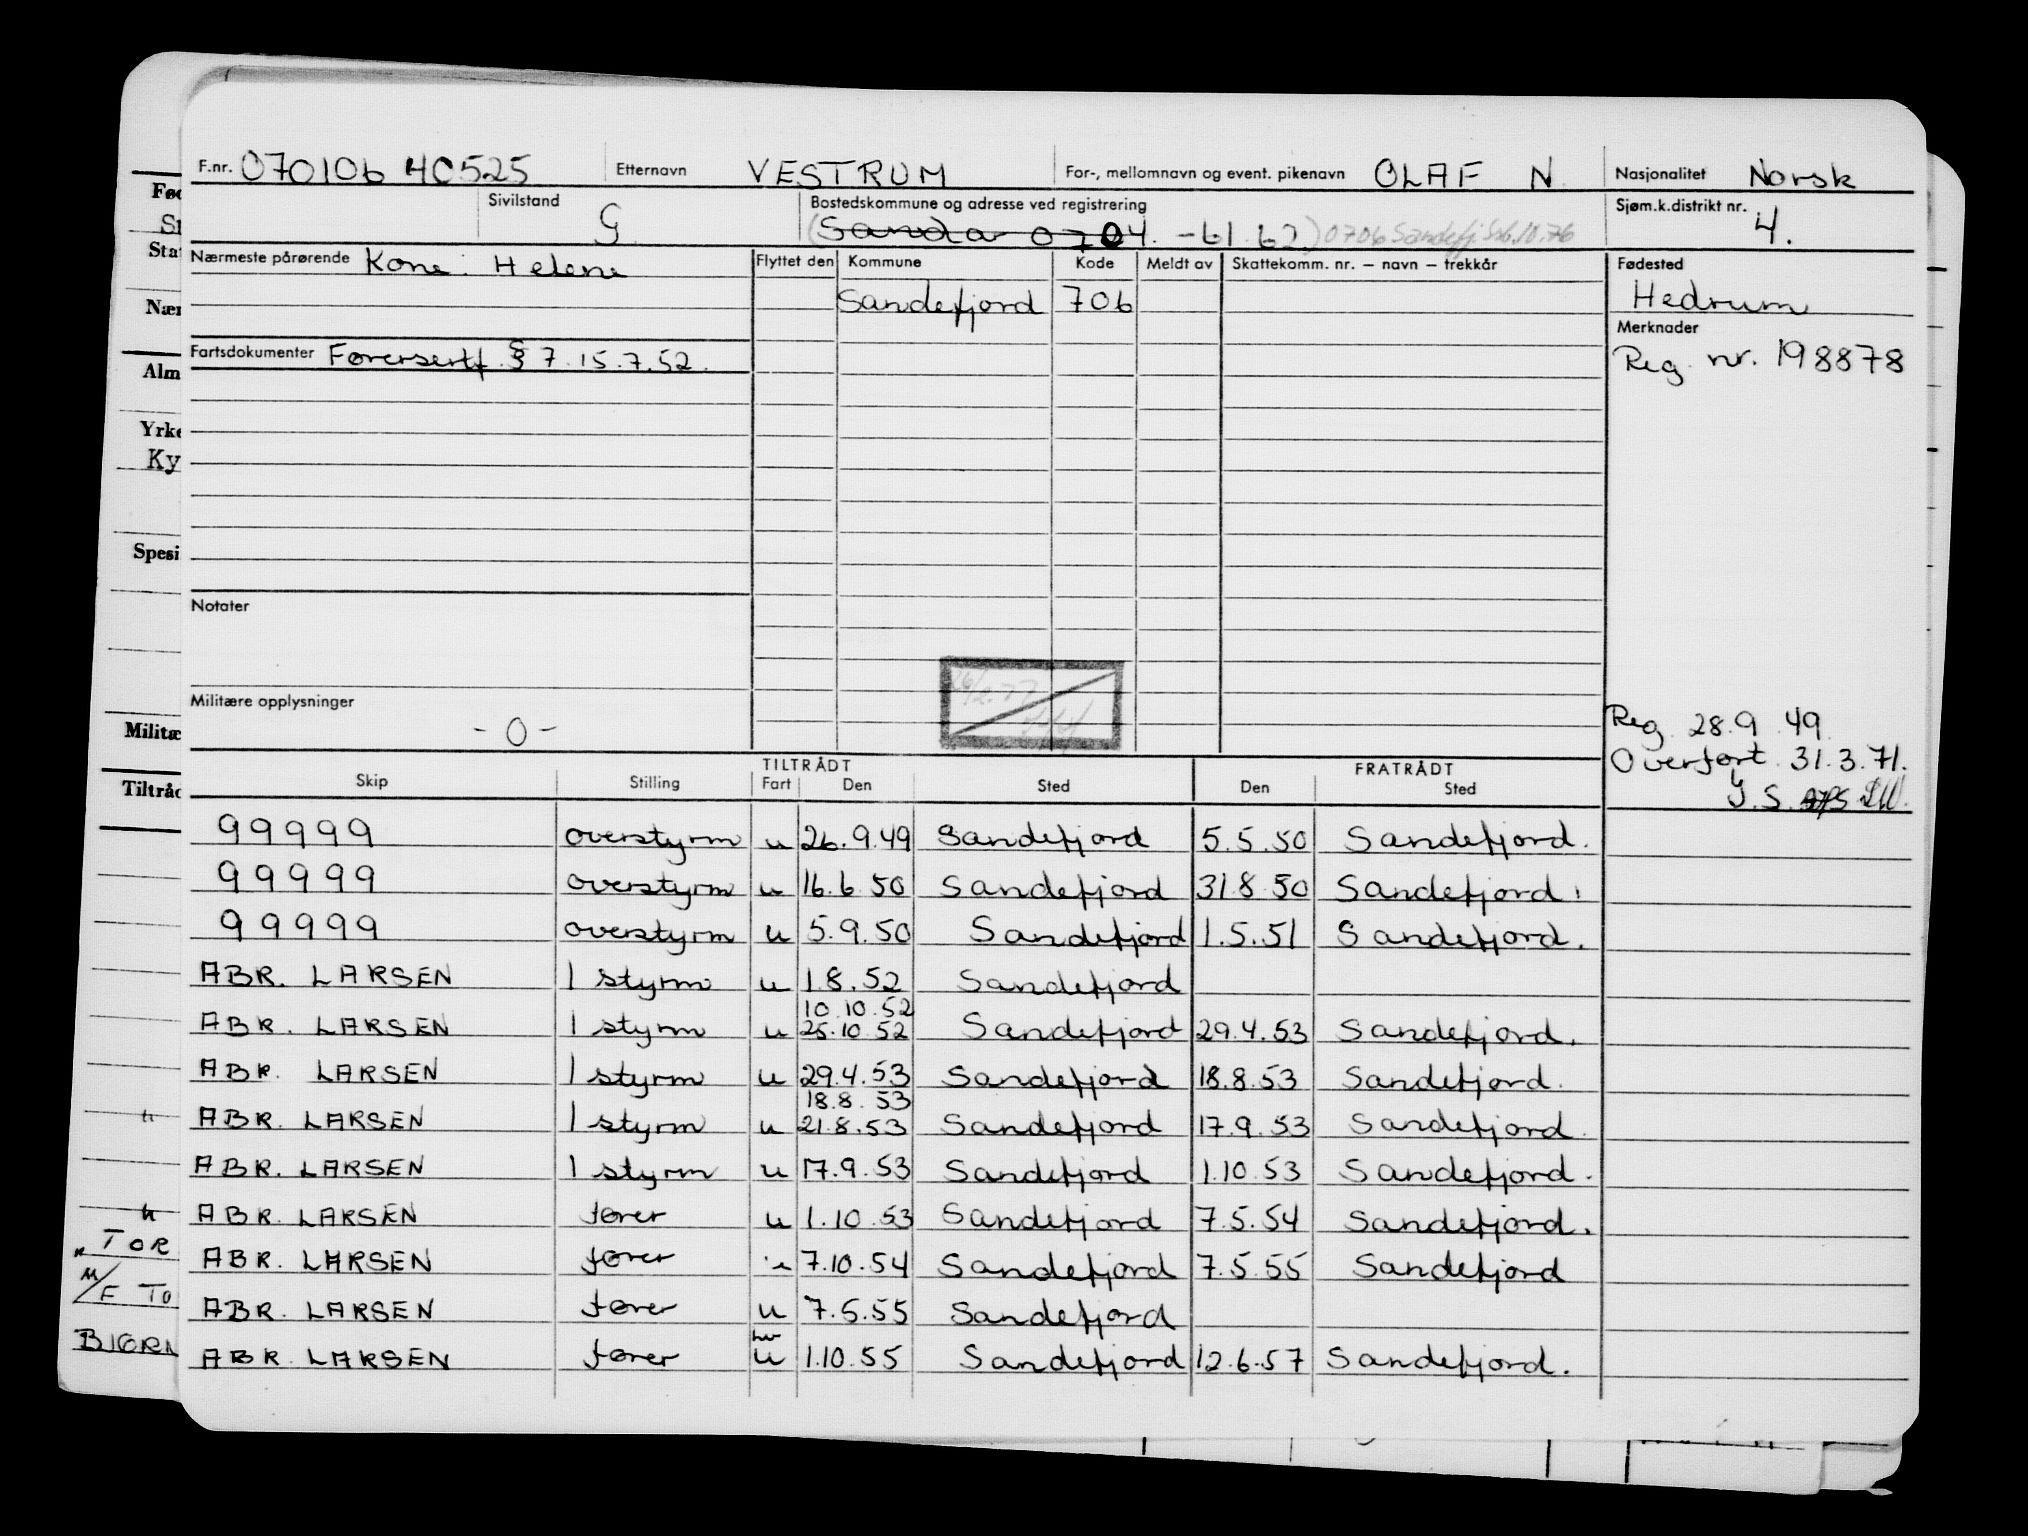 F.nr. 070106 40525 Etternavn VESTRUM For-, mellomnavn og event. pikenavn OLAF N. Nasjonalitet Norsk
Sivilstand G Bostedskommune og adresse ved registrering (Sanda 0704. -61.62) 0706 Sandefj. Sjøm.k.distrikt nr. 4.
Nærmeste pårørende Kone: Helene Flyttet den Kommune Kode Meldt av Skattekomm. nr. — navn — trekkår Fødested
Sandefjord 706 Hedrum
Merknader
Fartsdokumenter Førersertf. § 7. 15.7.52. Reg. nr. 198878
Notater
Militære opplysninger
- 0 -
Reg. 28.9.49.
Overført 31.3.71.
TILTRÅDT FRATRÅDT
Skip Stilling Fart Den Sted Den Sted
99999 overstyrm u 26.9.49 Sandefjord 5.5.50 Sandefjord.
99999 overstyrm u 16.6.50 Sandefjord 31.8.50 Sandefjord.
99999 overstyrm u 5.9.50 Sandefjord 1.5.51 Sandefjord.
ABR. LARSEN 1 styrm u 1.8.52 Sandefjord
10.10.52
ABR. LARSEN 1 styrm u 25.10.52 Sandefjord 29.4.53 Sandefjord.
ABR. LARSEN 1 styrm u 29.4.53 Sandefjord 18.8.53 Sandefjord.
18.8.53
ABR. LARSEN 1 styrm u 21.8.53 Sandefjord 17.9.53 Sandefjord.
ABR. LARSEN 1 styrm u 17.9.53 Sandefjord 1.10.53 Sandefjord.
ABR. LARSEN fører u 1.10.53 Sandefjord 7.5.54 Sandefjord.
ABR. LARSEN fører u 7.10.54 Sandefjord 7.5.55 Sandefjord
ABR. LARSEN fører u 7.5.55 Sandefjord
ABR. LARSEN fører u 1.10.55 Sandefjord 12.6.57 Sandefjord.
Fød
Stat
Nær
Alm
Yrke
Ky
Spesi
Militæ
Tiltråd
" TOR
M/F TO
BJØRN